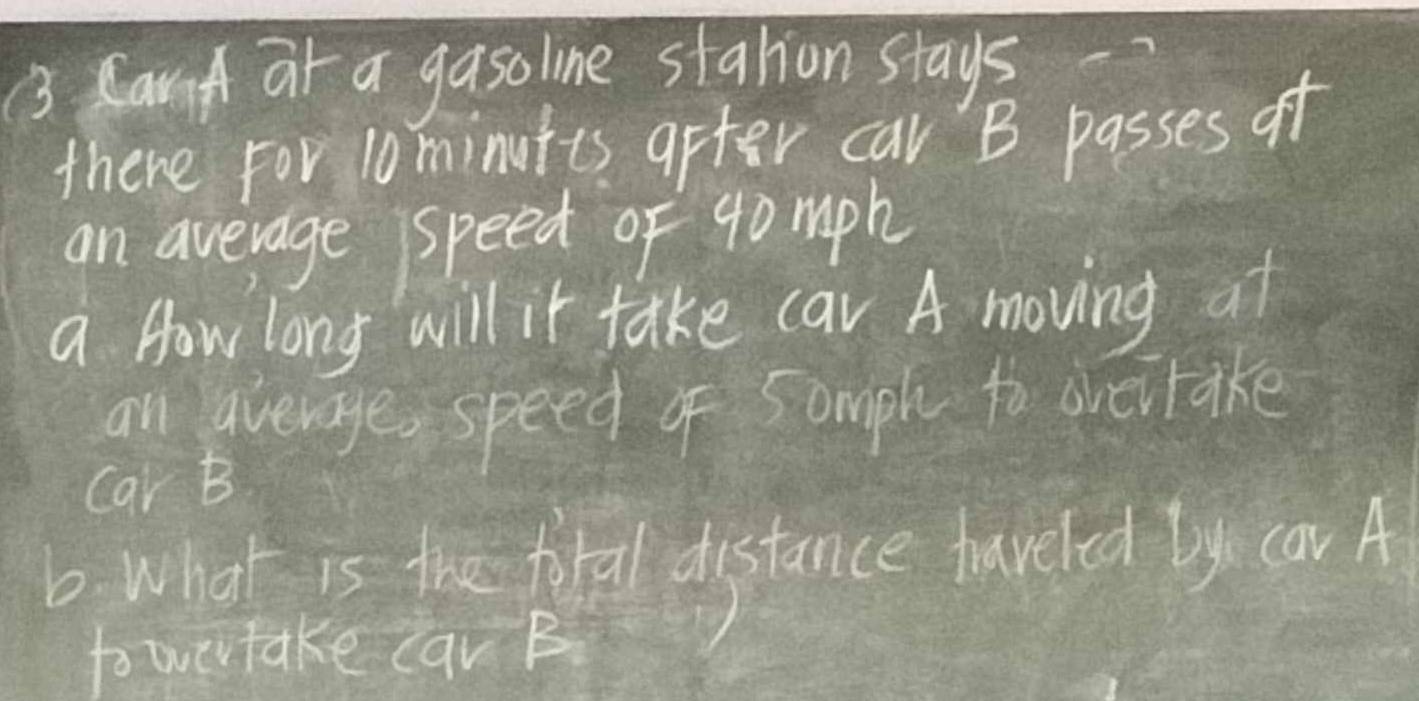 3 Car A at a gasoline station stays
there For 10 minutes after car B passes at
an average speed of 40 mph
a How long will it take car A moving at
an average speed of 50mph to overtake
car B
b. What is the total distance traveled by car A
to overtake car B